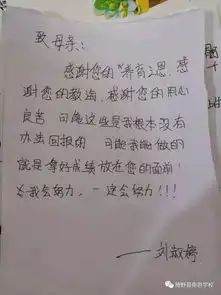 致母亲:
感谢您的“养育之恩,感
谢您的教出,感谢您的用心
良苦 可能这些是我根本没有
办出回报的 可能我能做的
就是拿好成绩放在您的面前!
我会努力,一定会努力!!!
——刘淑婷
博野县荣恩学校